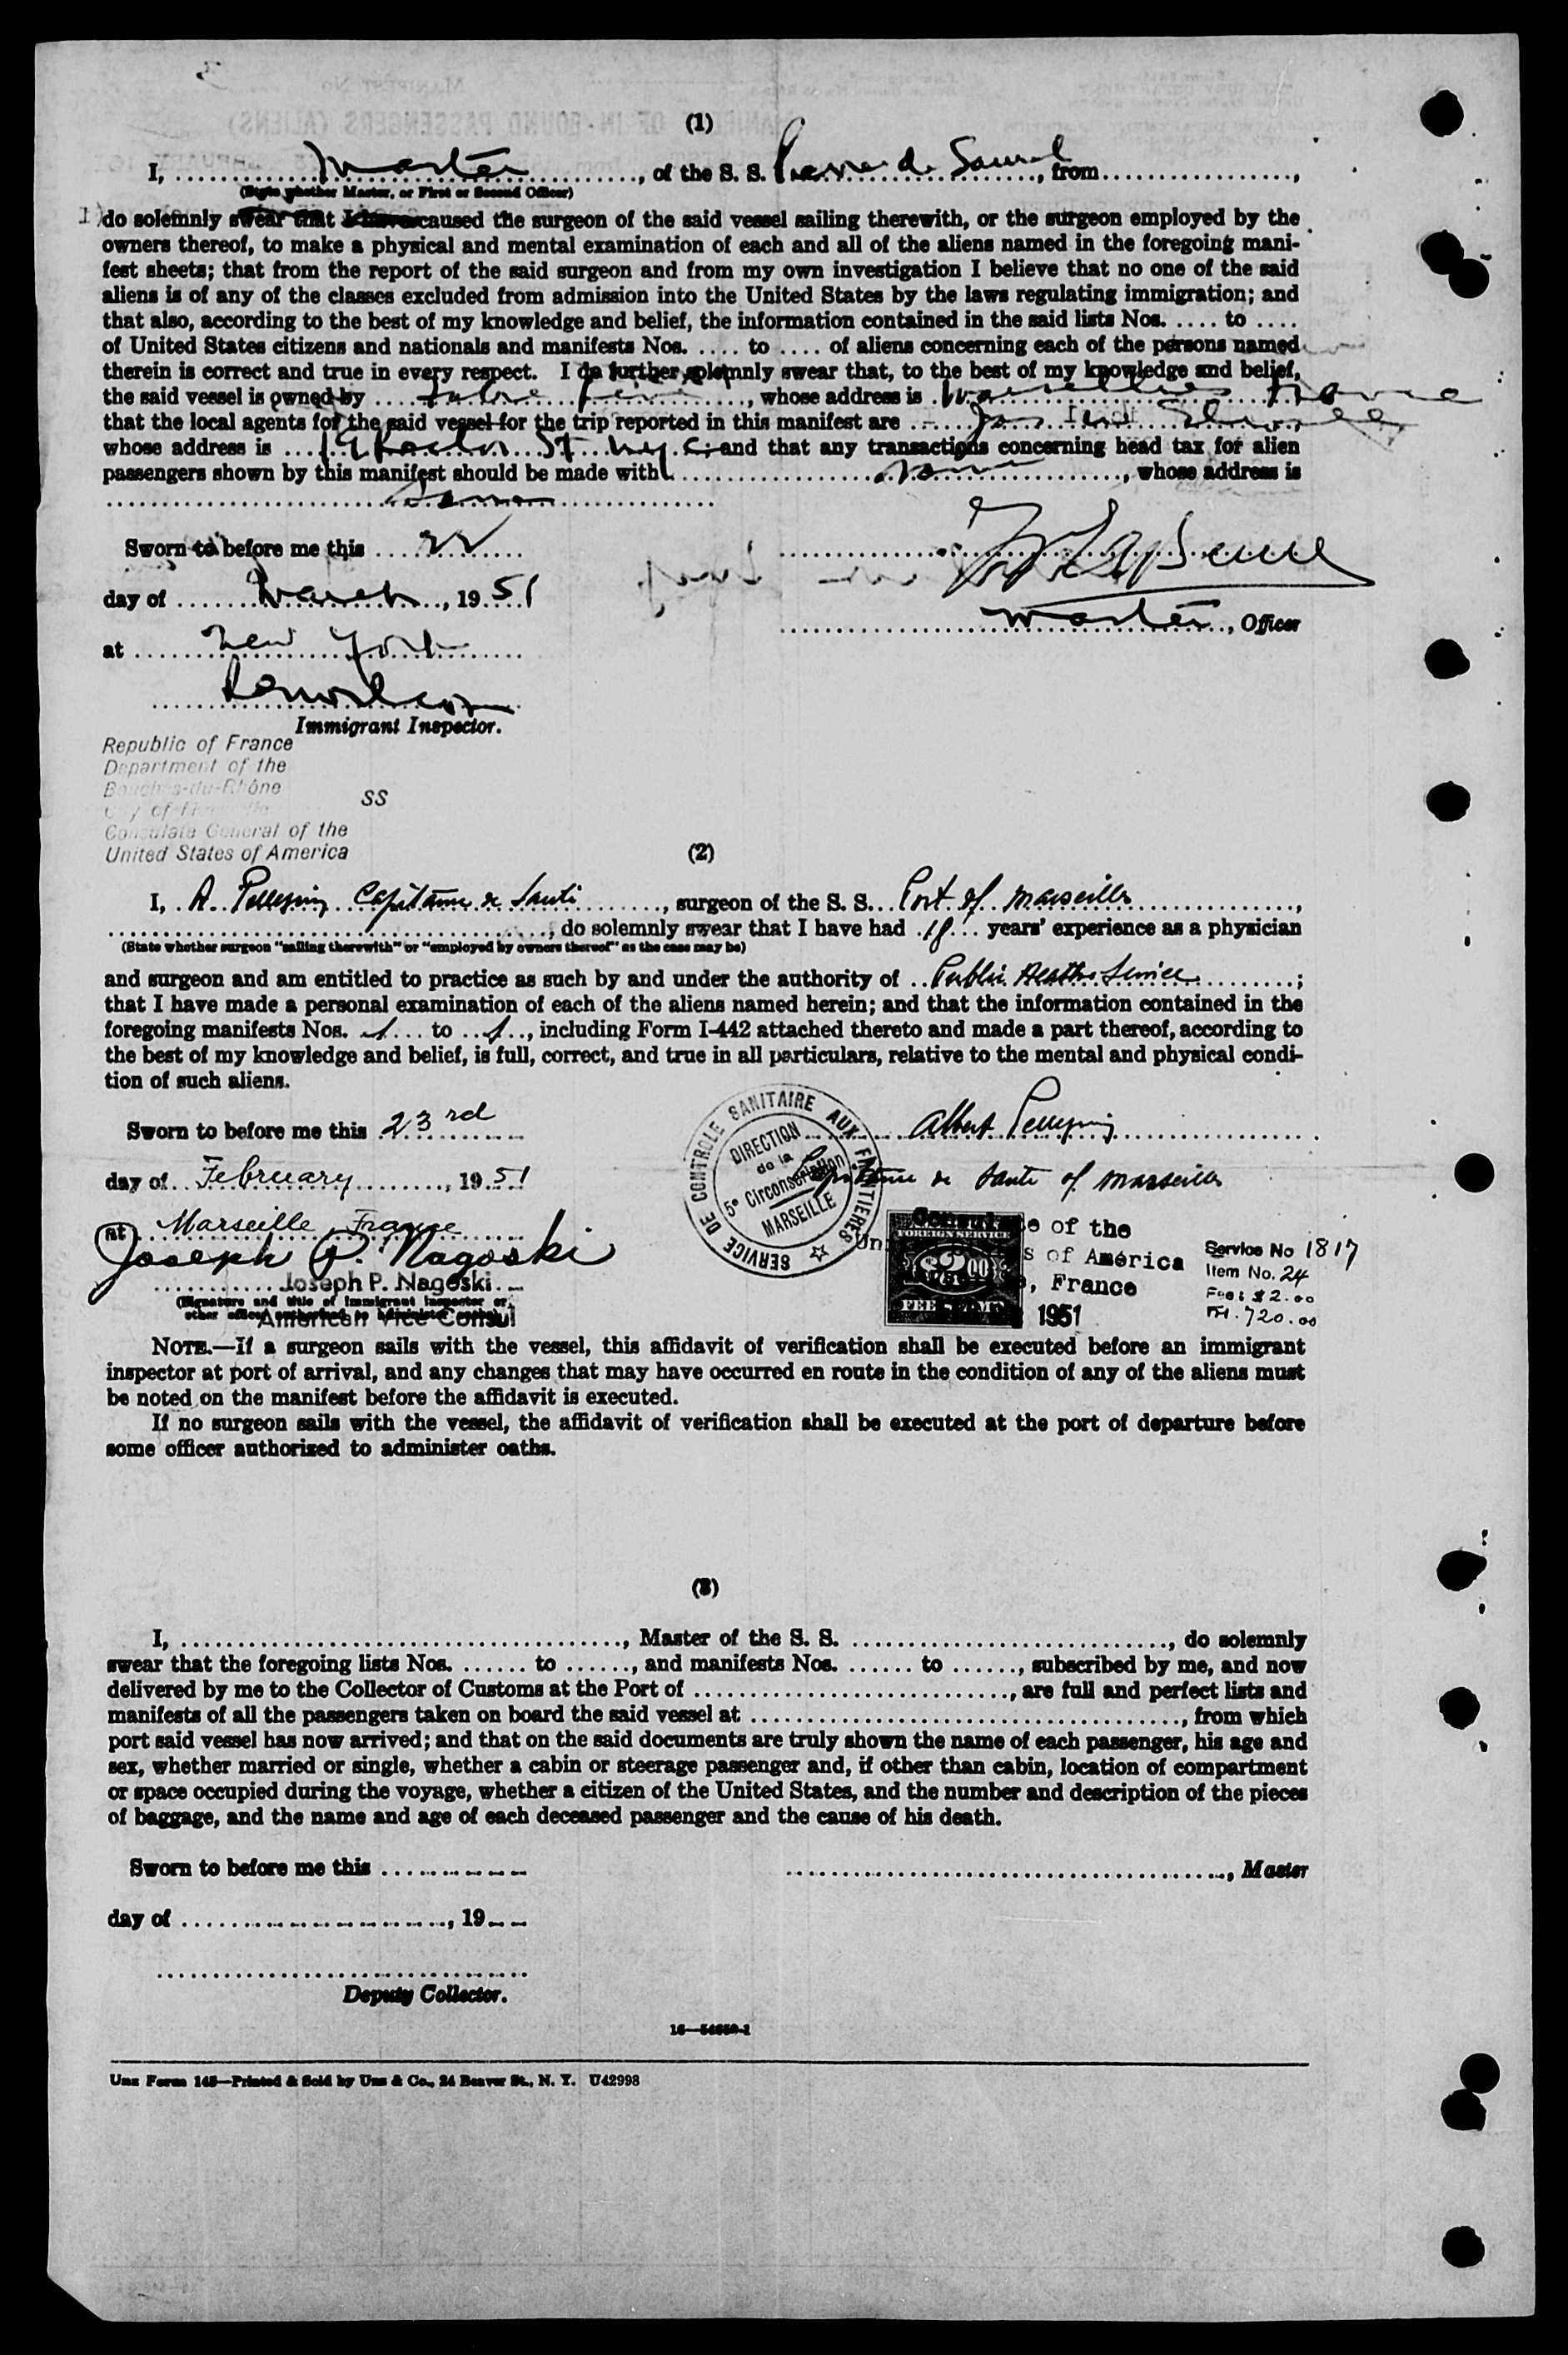 (1)
I, Master, of the S. S. Pierre de Saurel, from
(State whether Master, or First or Second Officer)
do solemnly swear that I have caused the surgeon of the said vessel sailing therewith, or the surgeon employed by the
owners thereof, to make a physical and mental examination of each and all of the aliens named in the foregoing mani-
fest sheets; that from the report of the said surgeon and from my own investigation I believe that no one of the said
aliens is of any of the classes excluded from admission into the United States by the laws regulating immigration; and
that also, according to the best of my knowledge and belief, the information contained in the said lists Nos. .... to ....
of United States citizens and nationals and manifests Nos. .... to .... of aliens concerning each of the persons named
therein is correct and true in every respect. I do further solemnly swear that, to the best of my knowledge and belief,
the said vessel is owned by, whose address is Marseilles France
that the local agents for the said vessel for the trip reported in this manifest are
whose address is St. N.Y.C. and that any transactions concerning head tax for alien
passengers shown by this manifest should be made with same, whose address is
same
Sworn to before me this 22
day of March, 1951
at New York
Master, Officer
Immigrant Inspector.
Republic of France
Department of the
Bouches-du-Rhône
City of Marseille
SS
Consulate General of the
United States of America
(2)
I, A. Capitaine de Santé, surgeon of the S. S. Port of Marseille,
, do solemnly swear that I have had 18 years' experience as a physician
(State whether surgeon "sailing therewith" or "employed by owners thereof" as the case may be)
and surgeon and am entitled to practice as such by and under the authority of Public Health Service;
that I have made a personal examination of each of the aliens named herein; and that the information contained in the
foregoing manifests Nos. 1 to 1, including Form I-442 attached thereto and made a part thereof, according to
the best of my knowledge and belief, is full, correct, and true in all particulars, relative to the mental and physical condi-
tion of such aliens.
Sworn to before me this 23rd
Albert
day of February, 1951
Capitaine de Santé of Marseille
at Marseille, France
Joseph P. Nagoski
Joseph P. Nagoski
(Signature and title of immigrant inspector or
other officer authorized to administer oaths)
American Vice Consul
SERVICE DE CONTROLE SANITAIRE AUX FRONTIERES
DIRECTION
de la
5e Circonscription
MARSEILLE
Consulate of the
United States of America
, France
1951
FOREIGN SERVICE
$2.00
FEE STAMP
Service No 1817
Item No. 24
Fee: $2.00
Fr. 720.00
NOTE.—If a surgeon sails with the vessel, this affidavit of verification shall be executed before an immigrant
inspector at port of arrival, and any changes that may have occurred en route in the condition of any of the aliens must
be noted on the manifest before the affidavit is executed.
If no surgeon sails with the vessel, the affidavit of verification shall be executed at the port of departure before
some officer authorized to administer oaths.
(3)
I, ......, Master of the S. S. ......, do solemnly
swear that the foregoing lists Nos. ...... to ......, and manifests Nos. ...... to ......, subscribed by me, and now
delivered by me to the Collector of Customs at the Port of ......, are full and perfect lists and
manifests of all the passengers taken on board the said vessel at ......, from which
port said vessel has now arrived; and that on the said documents are truly shown the name of each passenger, his age and
sex, whether married or single, whether a cabin or steerage passenger and, if other than cabin, location of compartment
or space occupied during the voyage, whether a citizen of the United States, and the number and description of the pieces
of baggage, and the name and age of each deceased passenger and the cause of his death.
Sworn to before me this ......
......, Master
day of ......, 19
Deputy Collector.
Unz Form 145—Printed & Sold by Unz & Co., 24 Beaver St., N. Y. U42998